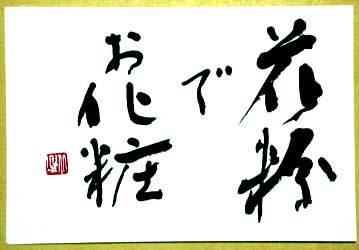 花粉
で
お化粧